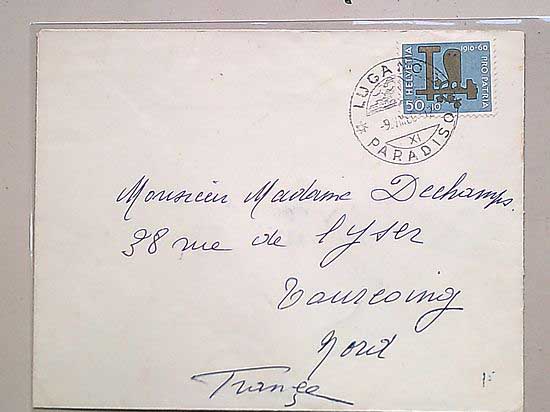 HELVETIA 1910-60 PRO PATRIA
50+10
LUGANO
PARADISO
XI
Monsieur Madame Dechamps.
38 rue de l'yser
Tourcoing
Nord
France